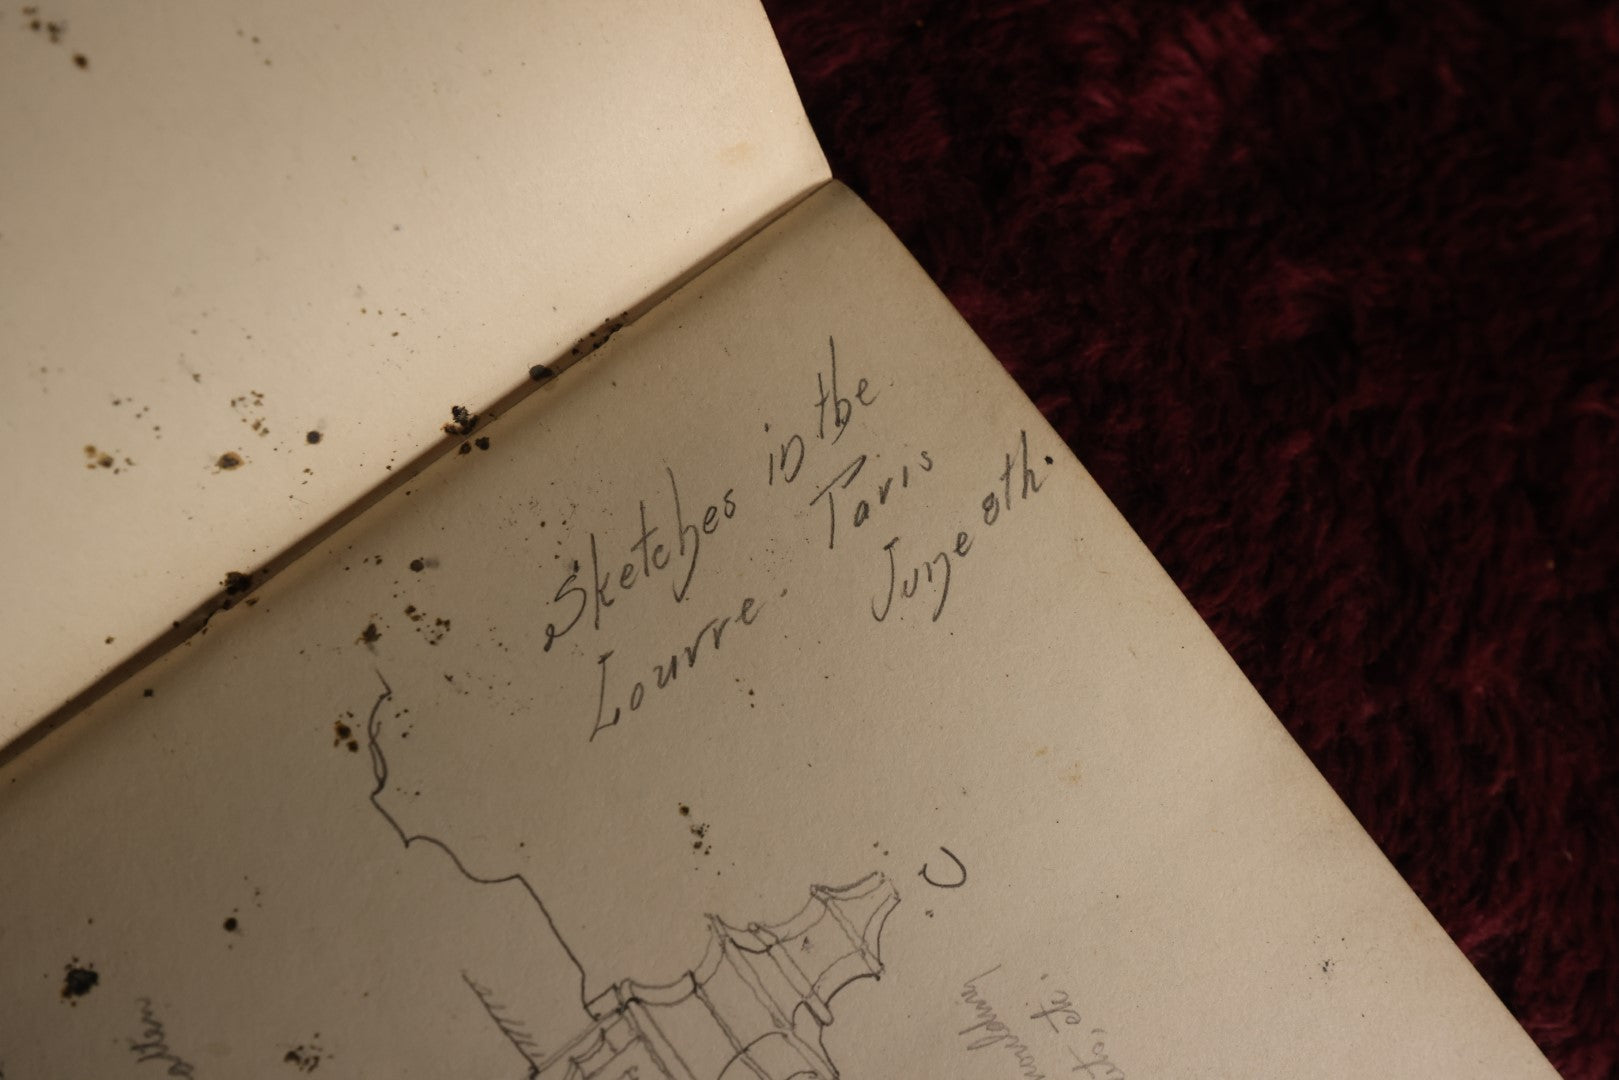 Sketches in the
Louvre. Paris
June 8th.
moulding
etc.